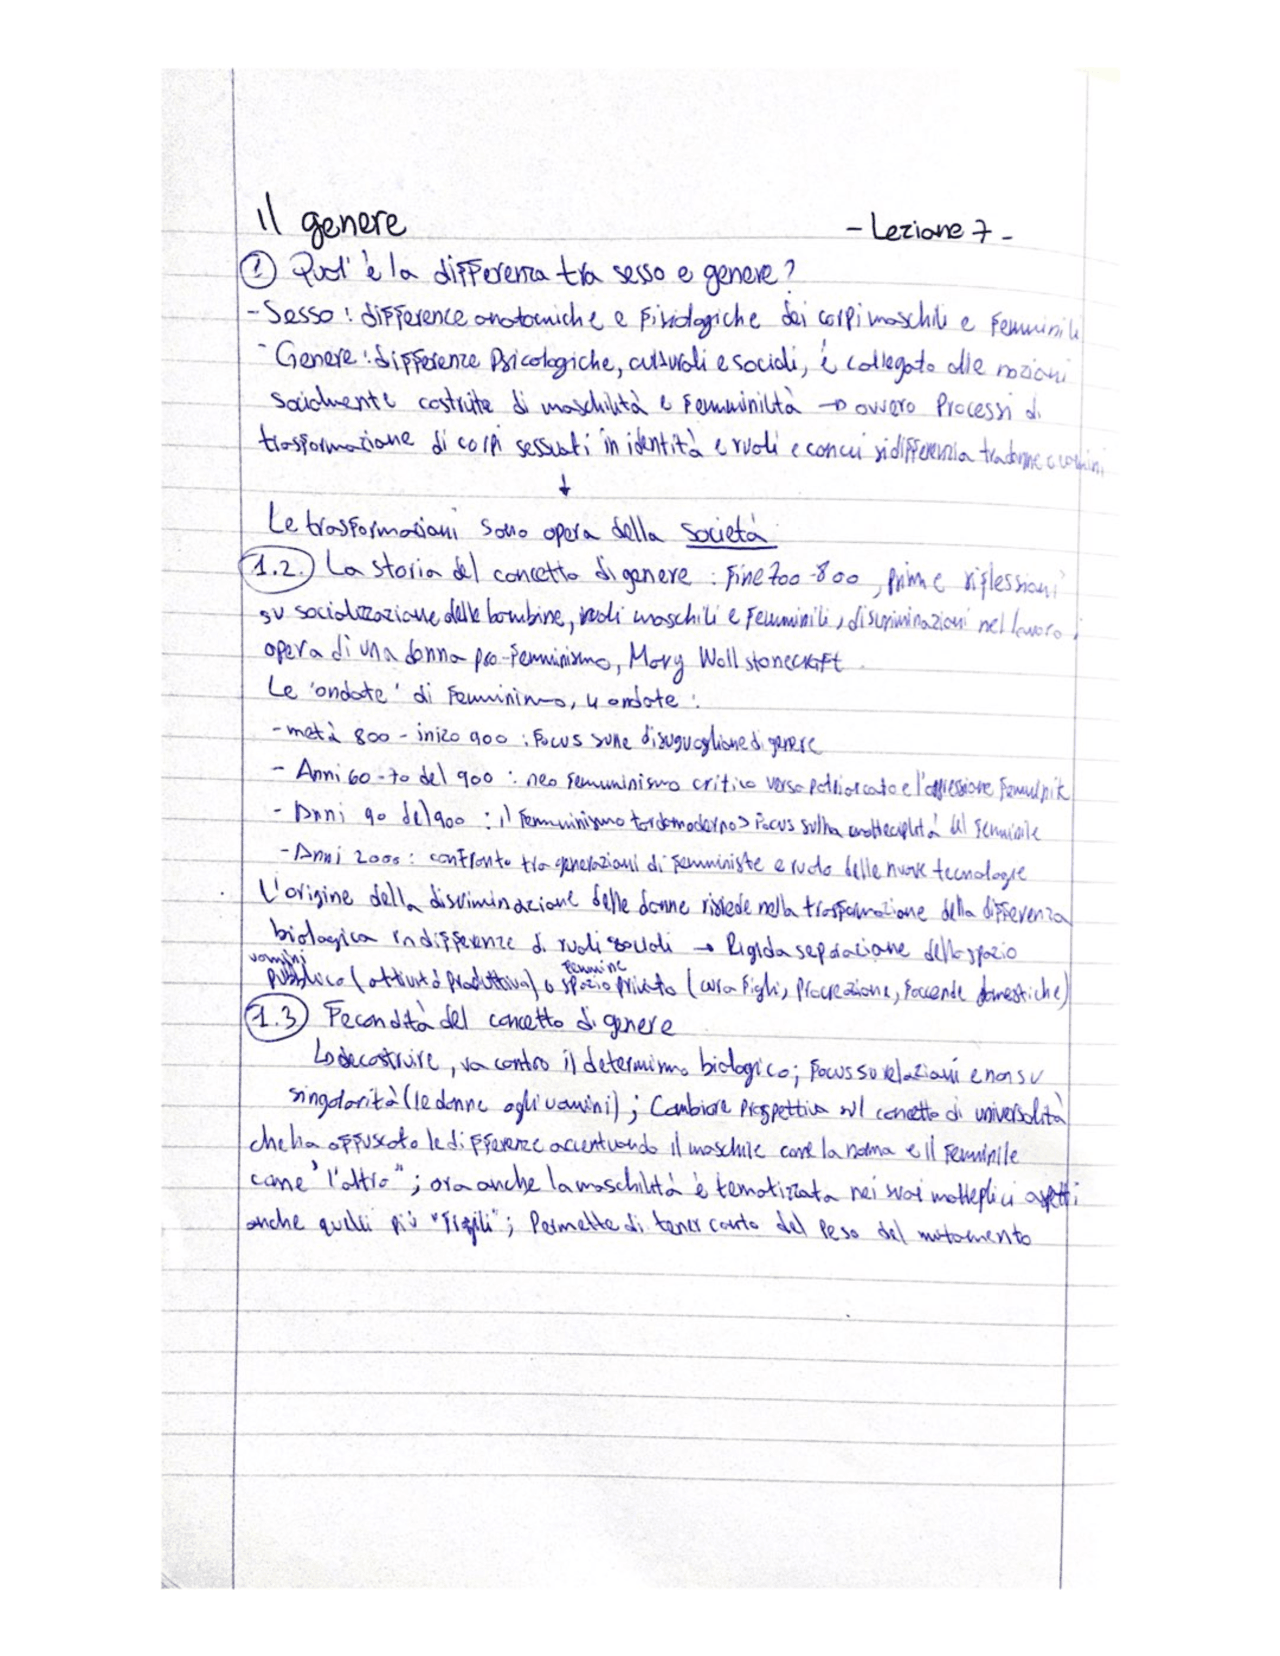 il genere
- Lezione 7 -
① Qual'è la differenza tra sesso e genere?
- Sesso: difference anatomiche e fisiologiche dei corpi maschili e femminili
- Genere: differenze psicologiche, culturali e sociali, è collegato alle nozioni
socialmente costruite di maschilità e femminilità → ovvero processi di
trasformazione di corpi sessuati in identità e ruoli e con cui si differenzia tra donne e uomini
↓
Le trasformazioni sono opera della società
1.2. La storia del concetto di genere : fine 700-800, prime riflessioni
su socializzazione delle bambine, ruoli maschili e femminili, discriminazioni nel lavoro
opera di una donna pro-femminismo, Mary Wollstonecraft.
Le 'ondate' di femminimo, 4 ondate :
- metà 800 - inizo 900 : focus sulle disuguaglianze di genere
- Anni 60-70 del 900 : neo femminismo critico verso patriarcato e l'oppressione
- Anni 90 del 900 : il femminismo tardomoderno > focus sulla molteciplità del femminile
- Anni 2000 : confronto tra generazioni di femministe e ruolo delle nuove tecnologie
L'origine della discriminazione delle donne risiede nella trasformazione della differenza
biologica in differenze di ruoli sociali → Rigida separazione dello spazio
uomini femmine
pubblico (attività produttiva) o spazio privato (cura figli, procreazione, faccende domestiche)
1.3 Fecondità del concetto di genere
Lo decostruire, va contro il determinmo biologico; focus su relazioni e non su
singolarità (le donne o gli uomini); Cambiare prospettiva sul concetto di universalità
che ha offuscato le differenze accentuando il maschile come la norma e il femminile
come "l'altro"; ora anche la maschilità è tematizzata nei suoi molteplici aspetti
anche quelli più "fragili"; Permette di tener conto del peso del mutamento